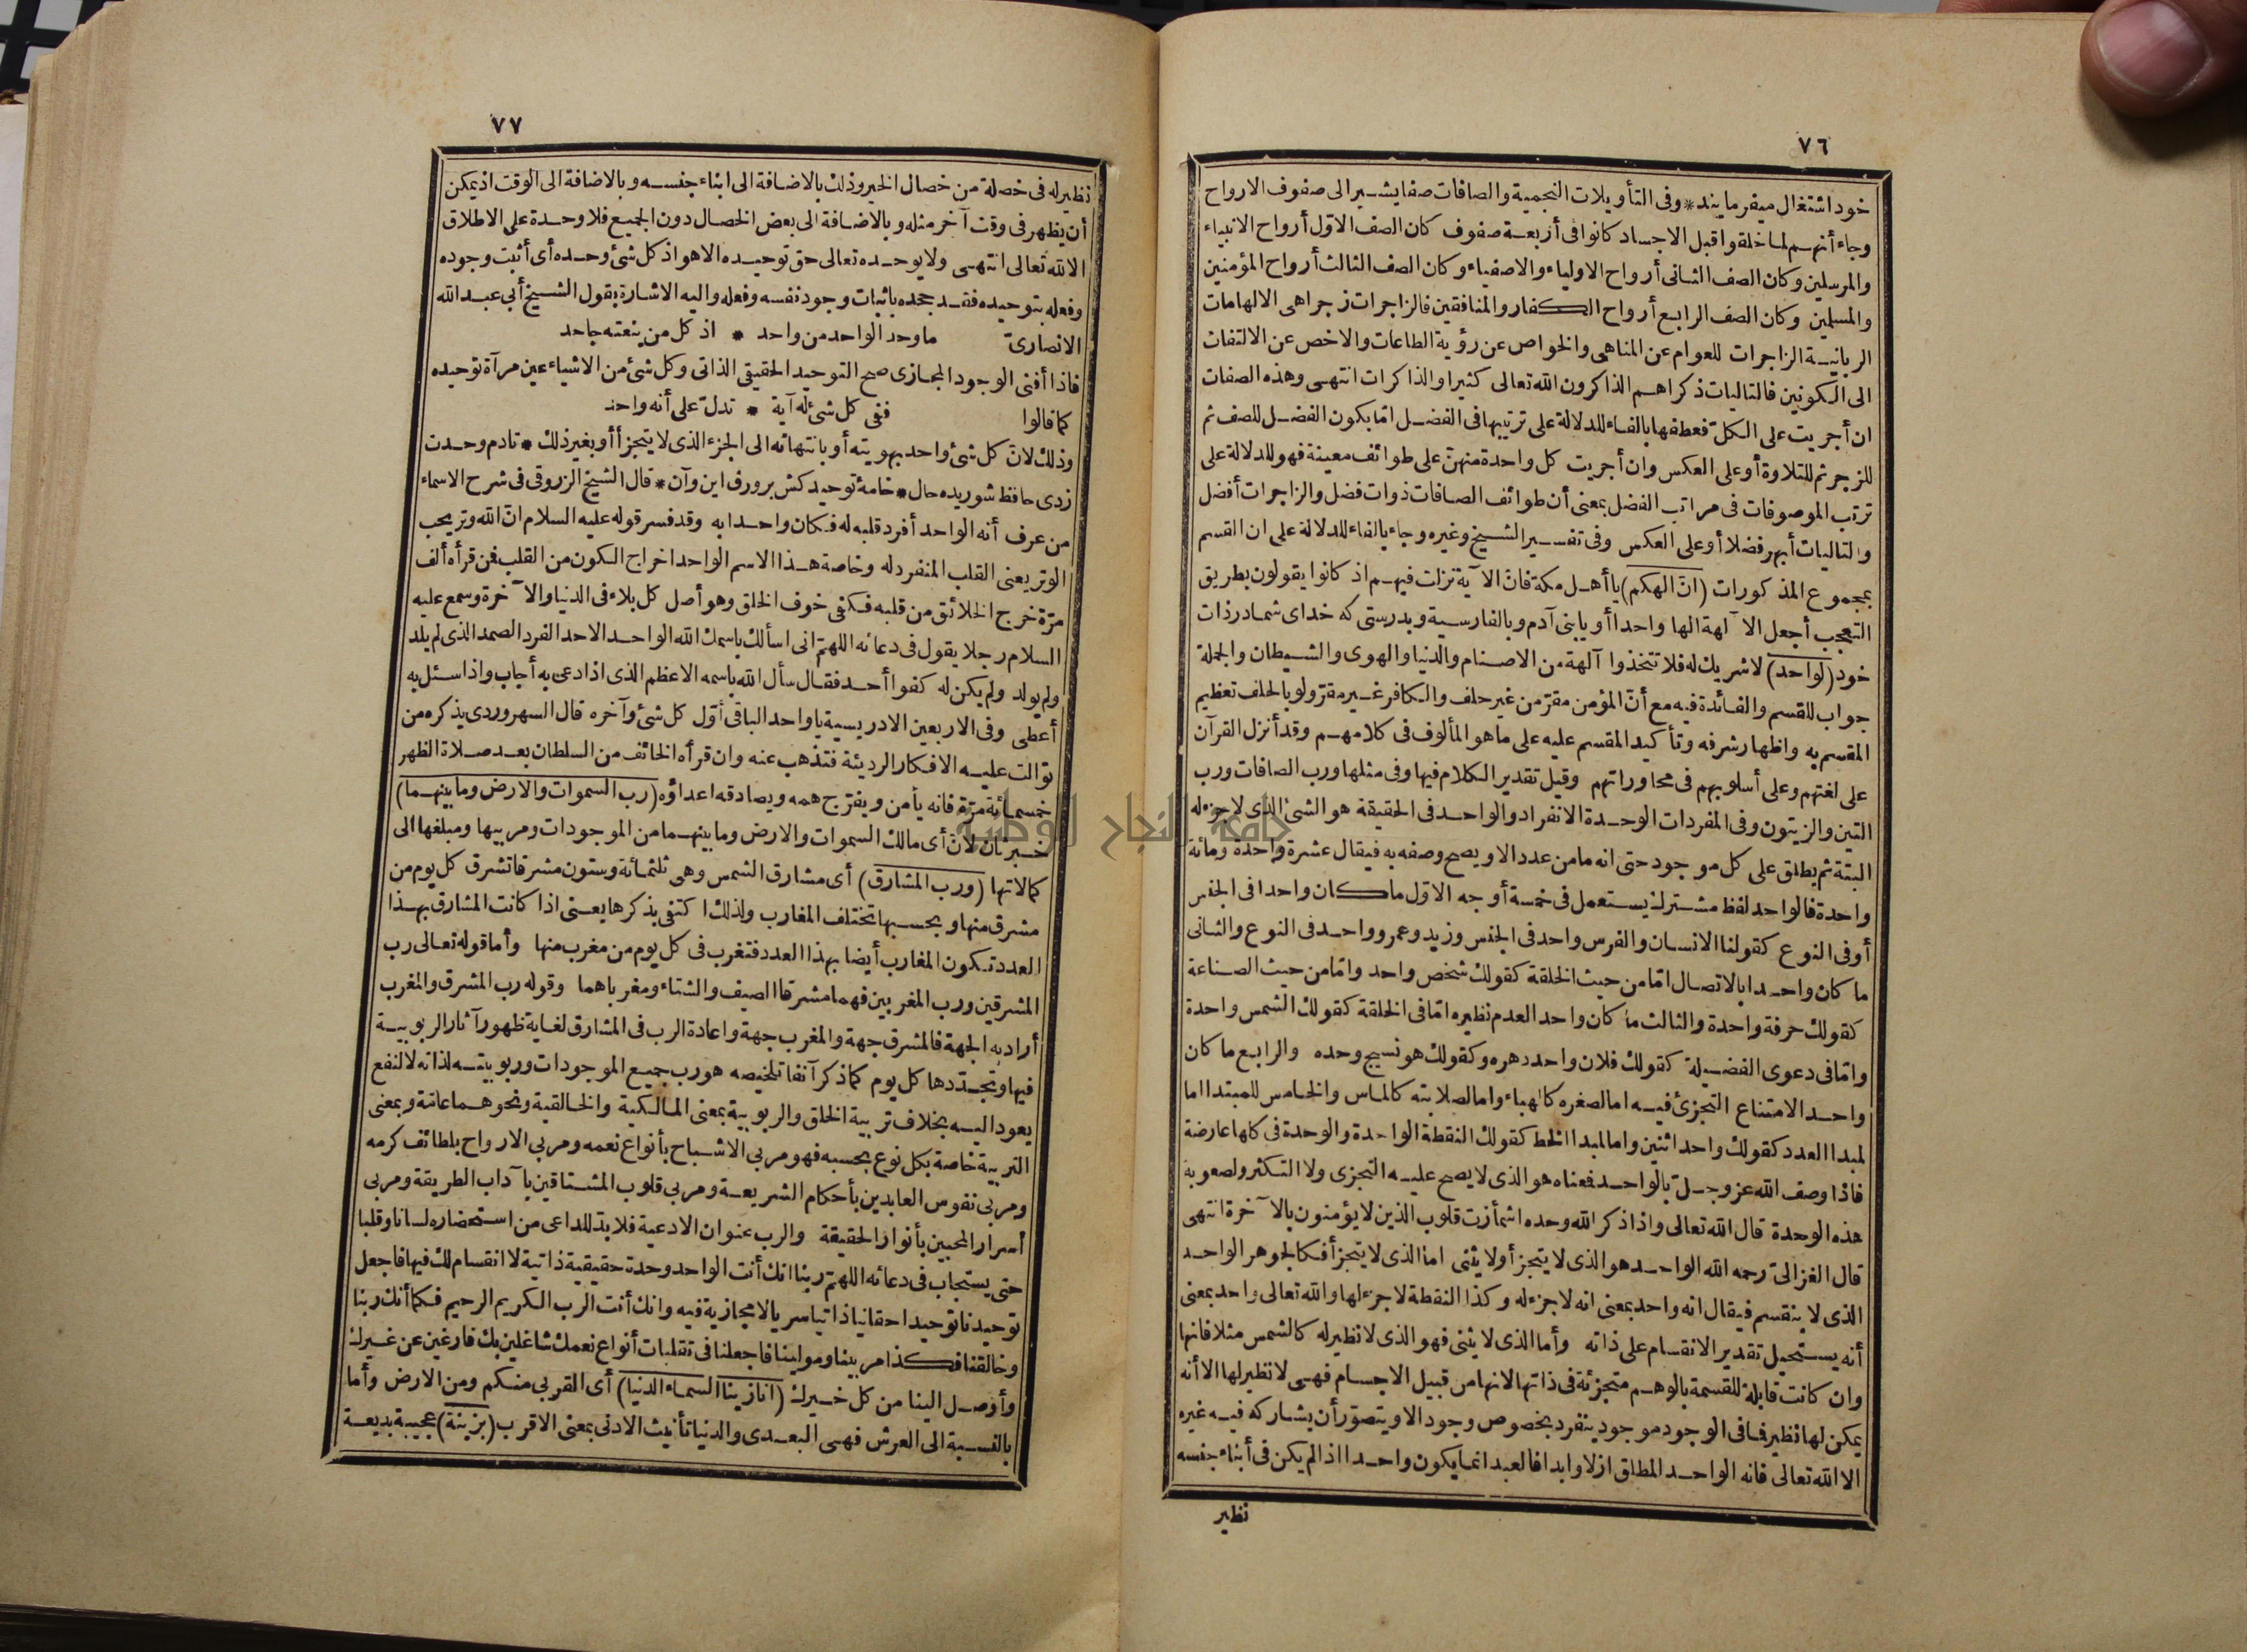 ٧٦
خود اشتغال ميفرمايند * وفى التأويلات النجمية والصافات صفا يشير الى صفوف الارواح
وجاء أنهم لما خلقوا قبل الاجساد كانوا فى أربعة صفوف كان الصف الاوّل أرواح الانبياء
والمرسلين وكان الصف الثانى أرواح الاولياء والاصفياء وكان الصف الثالث أرواح المؤمنين
والمسلمين وكان الصف الرابع أرواح الكفار والمنافقين فالزاجرات زجرا هى الالهامات
الربانية الزاجرات للعوام عن المناهى والخواص عن رؤية الطاعات والاخص عن الالتفات
الى الكونين فالتاليات ذكرا هم الذاكرون الله تعالى كثيرا والذاكرات انتهى وهذه الصفات
ان أجريت على الكلّ فعطفها بالفاء للدلالة على ترتيبها فى الفضل امّا بكون الفضل للصف ثم
للزجر ثم للتلاوة أو على العكس وان أجريت كل واحدة منهنّ على طوائف معينة فهو للدلالة على
ترتب الموصوفات فى مراتب الفضل بمعنى أن طوائف الصافات ذوات فضل والزاجرات أفضل
والتاليات أبهر فضلا أو على العكس وفى تفسير الشيخ وغيره وجاء بالفاء للدلالة على ان القسم
بمجموع المذكورات (انّ الهكم) يا أهل مكة فانّ الآية نزلت فيهم اذ كانوا يقولون بطريق
التعجب أجعل الآلهة الها واحدا أو يا بنى آدم وبالفارسية وبدرستى كه خداى شما در ذات
خود (لواحد) لا شريك له فلا تتخذوا آلهة من الاصنام والدنيا والهوى والشيطان والجملة
جواب للقسم والفائدة فيه مع أنّ المؤمن مقرّ من غير حلف والكافر غير مقرّ ولو بالحلف تعظيم
المقسم به واظهار شرفه وتأكيد المقسم عليه على ما هو المألوف فى كلامهم وقد أنزل القرآن
على لغتهم وعلى أسلوبهم فى محاوراتهم وقيل تقدير الكلام فيها وفى مثلها ورب الصافات ورب
التين والزيتون وفى المفردات الوحدة الانفراد والواحد فى الحقيقة هو الشئ الذى لا جزء له
البتة ثم يطلق على كل موجود حتى انه ما من عدد الا ويصح وصفه به فيقال عشرة واحدة ومائة
واحدة فالواحد لفظ مشترك يستعمل فى خمسة أوجه الاوّل ما كان واحدا فى الجنس
أو فى النوع كقولنا الانسان والفرس واحد فى الجنس وزيد وعمرو واحد فى النوع والثانى
ما كان واحدا بالاتصال امّا من حيث الخلقة كقولك شخص واحد وامّا من حيث الصناعة
كقولك حرفة واحدة والثالث ما كان واحد العدم نظيره امّا فى الخلقة كقولك الشمس واحدة
وامّا فى دعوى الفضيلة كقولك فلان واحد دهره وكقولك هو نسيج وحده والرابع ما كان
واحد الامتناع التجزئ فيه اما لصغره كالهباء واما لصلابته كالماس والخامس للمبتدا اما
لمبدا العدد كقولك واحد اثنين واما لمبدا الخط كقولك النقطة الواحدة والوحدة فى كلها عارضة
فاذا وصف الله عز وجلّ بالواحد فمعناه هو الذى لا يصح عليه التجزى ولا التكثر ولصعوبة
هذه الوحدة قال الله تعالى واذا ذكر الله وحده اشمأزت قلوب الذين لا يؤمنون بالآخرة انتهى
قال الغزالىّ رحمه الله الواحد هو الذى لا يتجزأ ولا يثنى اما الذى لا يتجزأ فكالجوهر الواحد
الذى لا ينقسم فيقال انه واحد بمعنى انه لا جزء له وكذا النقطة لا جزء لها والله تعالى واحد بمعنى
أنه يستحيل تقدير الانقسام على ذاته وأما الذى لا يثنى فهو الذى لا نظير له كالشمس مثلا فانها
وان كانت قابلة للقسمة بالوهم متجزئة فى ذاتها لانها من قبيل الاجسام فهى لا نظير لها الا أنه
يمكن لها نظير فما فى الوجود موجود ينفرد بخصوص وجود الا ويتصوّر أن يشاركه فيه غيره
الا الله تعالى فانه الواحد المطلق ازلا وابدا فالعبد انما يكون واحدا اذا لم يكن فى أبناء جنسه
نظير
٧٧
نظير له فى خصلة من خصال الخير وذلك بالاضافة الى ابناء جنسه وبالاضافة الى الوقت اذ يمكن
أن يظهر فى وقت آخر مثله وبالاضافة الى بعض الخصال دون الجميع فلا وحدة على الاطلاق
الا لله تعالى انتهى ولا يوحده تعالى حق توحيده الا هو اذ كل شئ وحده أى أثبت وجوده
وفعله بتوحيده فقد جحده باثبات وجود نفسه وفعله واليه الاشارة بقول الشيخ أبى عبد الله
الانصارىّ ما وحد الواحد من واحد * اذ كل من ينعته جاحد
فاذا أفنى الوجود المجازى صح التوحيد الحقيقى الذاتى وكل شئ من الاشياء عين مرآة توحيده
كما قالوا ففى كل شئ له آية * تدلّ على أنه واحد
وذلك لانّ كل شئ واحد بهويته أو بانتهائه الى الجزء الذى لا يتجزأ أو بغير ذلك * تا دم وحدت
زدى حافظ شوريده حال * خامهٔ توحيد كش بر ورق اين وآن * قال الشيخ الزروقى فى شرح الاسماء
من عرف أنه الواحد أفرد قلبه له فكان واحدا به وقد فسر قوله عليه السلام انّ الله وتر يحب
الوتر يعنى القلب المنفرد له وخاصة هذا الاسم الواحد اخراج الكون من القلب فمن قرأه ألف
مرّة خرج الخلائق من قلبه فكفى خوف الخلق وهو أصل كل بلاء فى الدنيا والآخرة وسمع عليه
السلام رجلا يقول فى دعائه اللهمّ انى اسألك باسمك الله الواحد الاحد الفرد الصمد الذى لم يلد
ولم يولد ولم يكن له كفوا أحد فقال سأل الله باسمه الاعظم الذى اذا دعى به أجاب واذا سئل به
أعطى وفى الاربعين الادريسية يا واحد الباقى أوّل كل شئ وآخره قال السهروردى يذكره من
توالت عليه الافكار الرديئة فتذهب عنه وان قرأه الخائف من السلطان بعد صلاة الظهر
خمسمائة مرّة فانه يأمن ويفرّج همه ويصادقه اعداؤه (رب السموات والارض وما بينهما)
خبر ثان لانّ أى مالك السموات والارض وما بينهما من الموجودات ومربيها ومبلغها الى
كمالاتها (ورب المشارق) أى مشارق الشمس وهى ثلثمائة وستون مشرقا تشرق كل يوم من
مشرق منها وبحسبها تختلف المغارب ولذلك اكتفى بذكرها يعنى اذا كانت المشارق بهذا
العدد تكون المغارب أيضا بهذا العدد فتغرب فى كل يوم من مغرب منها وأما قوله تعالى رب
المشرقين ورب المغربين فهما مشرقا الصيف والشتاء ومغرباهما وقوله رب المشرق والمغرب
أراد به الجهة فالمشرق جهة والمغرب جهة واعادة الرب فى المشارق لغاية ظهور آثار الربوبية
فيها وتجدّدها كل يوم كما ذكر آنفا تلخيصه هو رب جميع الموجودات وربوبيته لذاته لا لنفع
يعود اليه بخلاف تربية الخلق والربوبية بمعنى المالكية والخالقية ونحوهما عامّة وبمعنى
التربية خاصة بكل نوع بحسبه فهو مربى الاشباح بأنواع نعمه ومربى الارواح بلطائف كرمه
ومربى نفوس العابدين بأحكام الشريعة ومربى قلوب المشتاقين بآداب الطريقة ومربى
أسرار المحبين بأنوار الحقيقة والرب عنوان الادعية فلا بدّ للداعى من استحضاره لسانا وقلبا
حتى يستجاب فى دعائه اللهمّ ربنا انك أنت الواحد وحدة حقيقية ذاتية لا انقسام لك فيها فاجعل
توحيدنا توحيدا حقانيا ذاتيا سريا لا مجازية فيه وانك أنت الرب الكريم الرحيم فكما أنك ربنا
وخالقنا فكذا مربينا ومولينا فاجعلنا فى تقلبات أنواع نعمك شاغلين بك فارغين عن غيرك
وأوصل الينا من كل خيرك (انا زينا السماء الدنيا) أى القربى منكم ومن الارض وأما
بالنسبة الى العرش فهى البعدى والدنيا تأنيث الادنى بمعنى الاقرب (بزينة) عجيبة بديعة
جامعة النجاح الوطنية